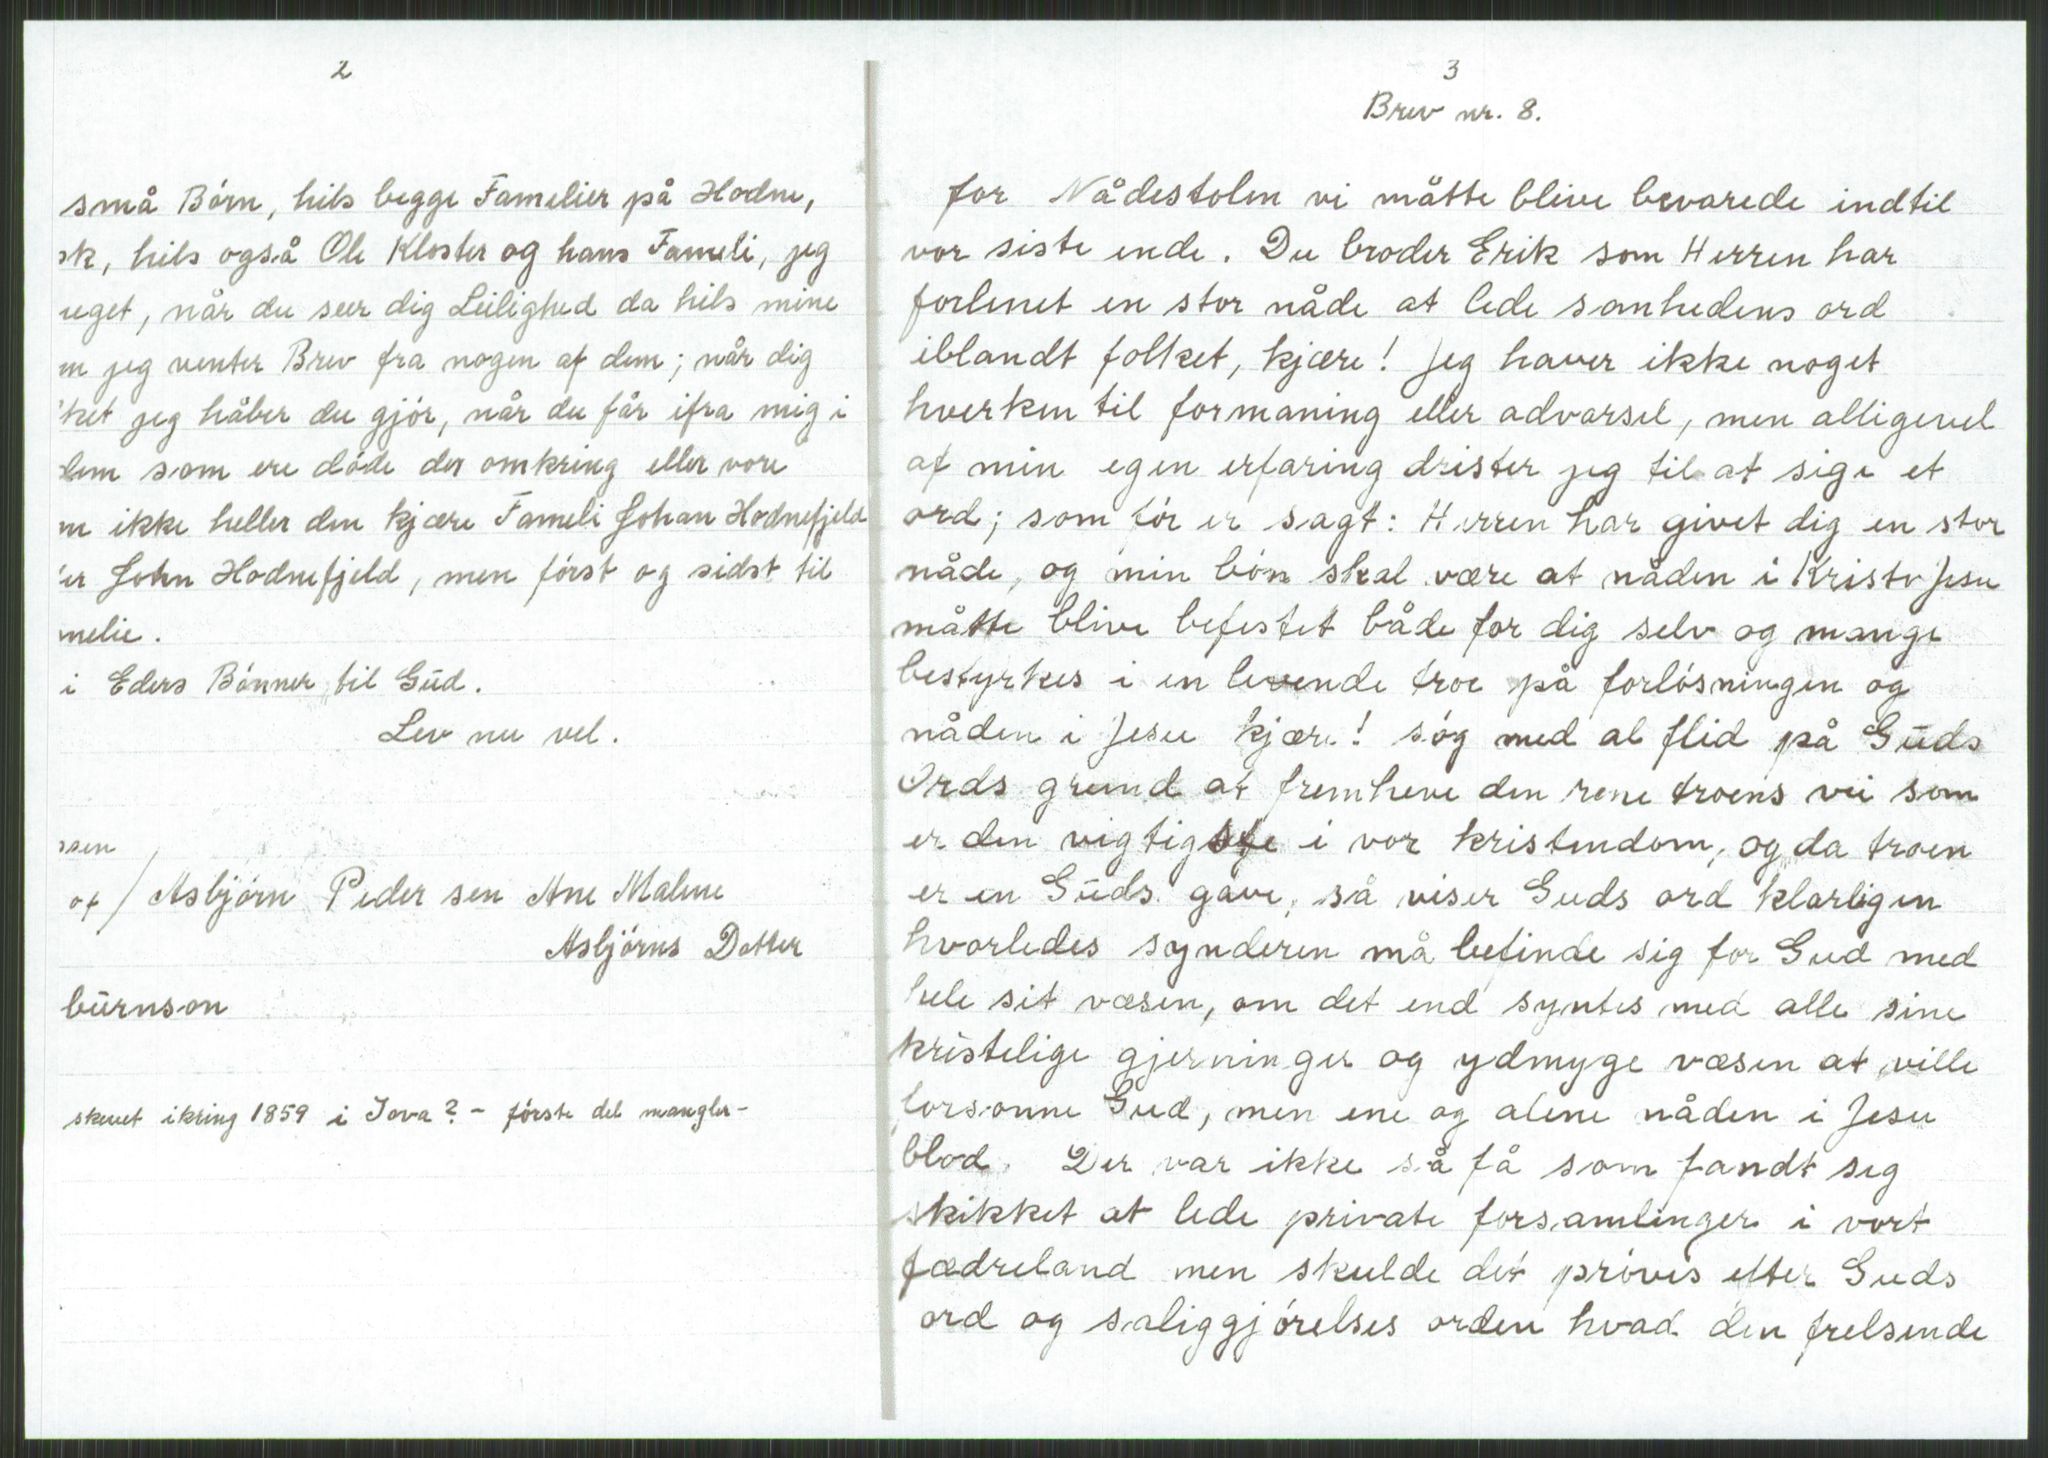 2
små Børn, hils begge Famelier på Hodne,
sk, hils også Ole Kloster og hans Fameli, jeg
uget, når du seer dig Leilighed da hils mine
m jeg venter Brev fra nogen af dem; når dig
ket jeg håber du gjór, når du får ifra mig i
dem som ere dóde der omkring eller vore
m ikke heller den kjære Fameli Johan Hodnefjeld
er John Hodnefjeld, men fórst og sidst til
melie.
i Eders Bónner til Gud.
Lev nu vel.
ssen
af / Asbjórn Peder sen Ane Malene
Asbjórns Datter
burnson
skrevet ikring 1859 i Iova? - fórste del mangler-
3
Brev nr. 8.
for Nådestolen vi måtte blive bevarede indtil
vor siste ende. Du broder Erik som Herren har
forlenet en stor nåde at lede sanhedens ord
iblandt folket, kjære! Jeg haver ikke noget
hverken til formaning eller advarsel, men alligevel
af min egen erfaring drister jeg til at sige et
ord; som fór er sagt: Herren har givet dig en stor
nåde, og min bón skal være at nåden i Kristo Jesu
måtte blive befestet både for dig selv og mange
bestyrkes i en levende troe på forlósningen og
nåden i Jesu kjære! sóg med al flid på Guds
Ords grund at fremheve den rene troens vei som
er den vigtigste i vor kristendom, og da troen
er en Guds gave, så viser Guds ord klarligen
hvorledes synderen må befinde sig for Gud med
hele sit væsen, om det end syntes med alle sine
kristelige gjerninger og ydmyge væsen at ville
forsonne Gud, men ene og alene nåden i Jesu
blod. Der var ikke så få som fandt seg
skikket at lede private forsamlinger i vort
fædreland men skulde det próves efter Guds
ord og saliggjórelses orden hvad den frelsende